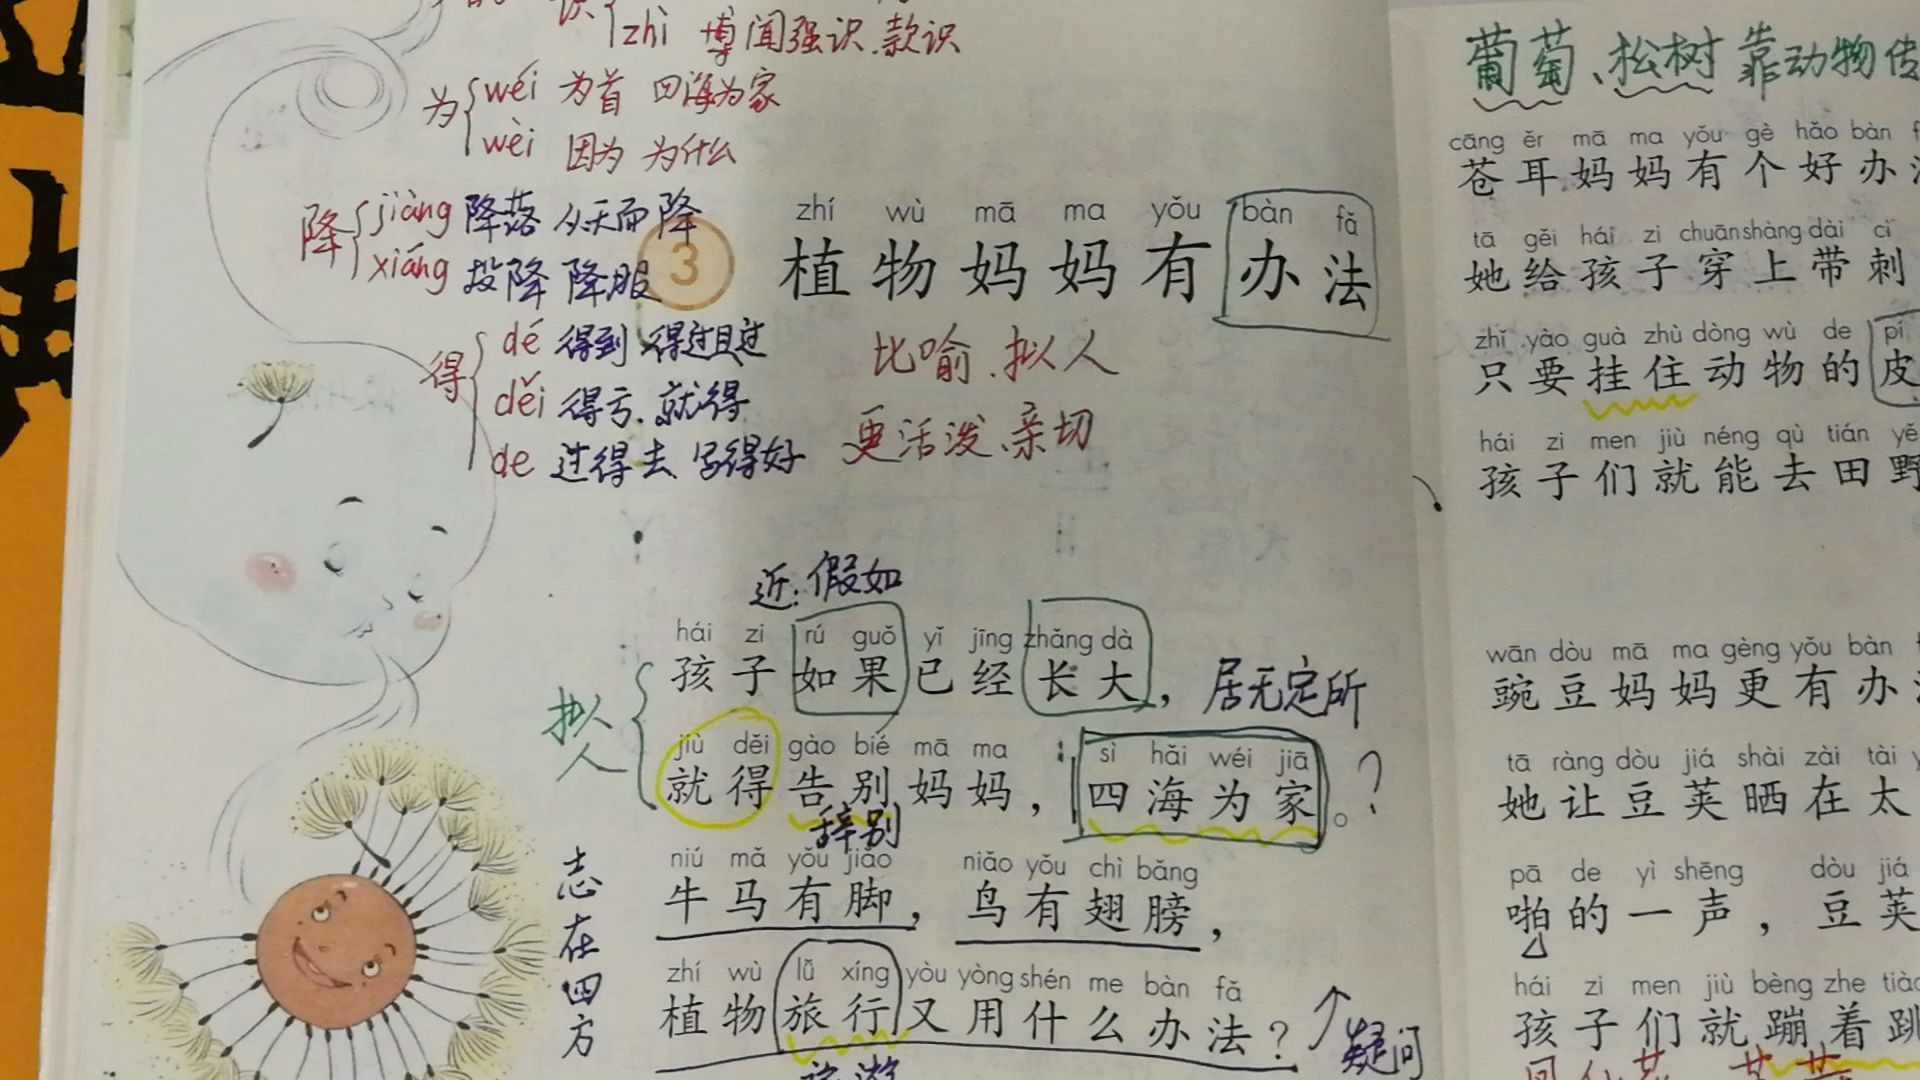 识 zhì 博闻强识、款识
为 wéi 为首 四海为家
wèi 因为 为什么
降 jiàng 降落 从天而降
xiáng 投降 降服
得 dé 得到 得过且过
děi 得亏、就得
de 过得去 写得好
3
zhí wù mā ma yǒu bàn fǎ
植物妈妈有办法
比喻、拟人
更活泼、亲切
近:假如
hái zi rú guǒ yǐ jīng zhǎng dà
孩子如果已经长大,
居无定所
拟人
jiù děi gào bié mā ma sì hǎi wéi jiā
就得告别妈妈,四海为家。?
辞别
niú mǎ yǒu jiǎo niǎo yǒu chì bǎng
牛马有脚,鸟有翅膀,
志在四方
zhí wù lǚ xíng yòu yòng shén me bàn fǎ
植物旅行又用什么办法?
疑问
葡萄、松树靠动物传
cāng ěr mā ma yǒu gè hǎo bàn
苍耳妈妈有个好办
tā gěi hái zi chuān shàng dài cì
她给孩子穿上带刺
zhǐ yào guà zhù dòng wù de pí
只要挂住动物的皮
hái zi men jiù néng qù tián yě
孩子们就能去田野
wān dòu mā ma gèng yǒu bàn
豌豆妈妈更有办
tā ràng dòu jiá shài zài tài
她让豆荚晒在太
pā de yì shēng dòu jiá
啪的一声,豆荚
hái zi men jiù bèng zhe tiào
孩子们就蹦着跳